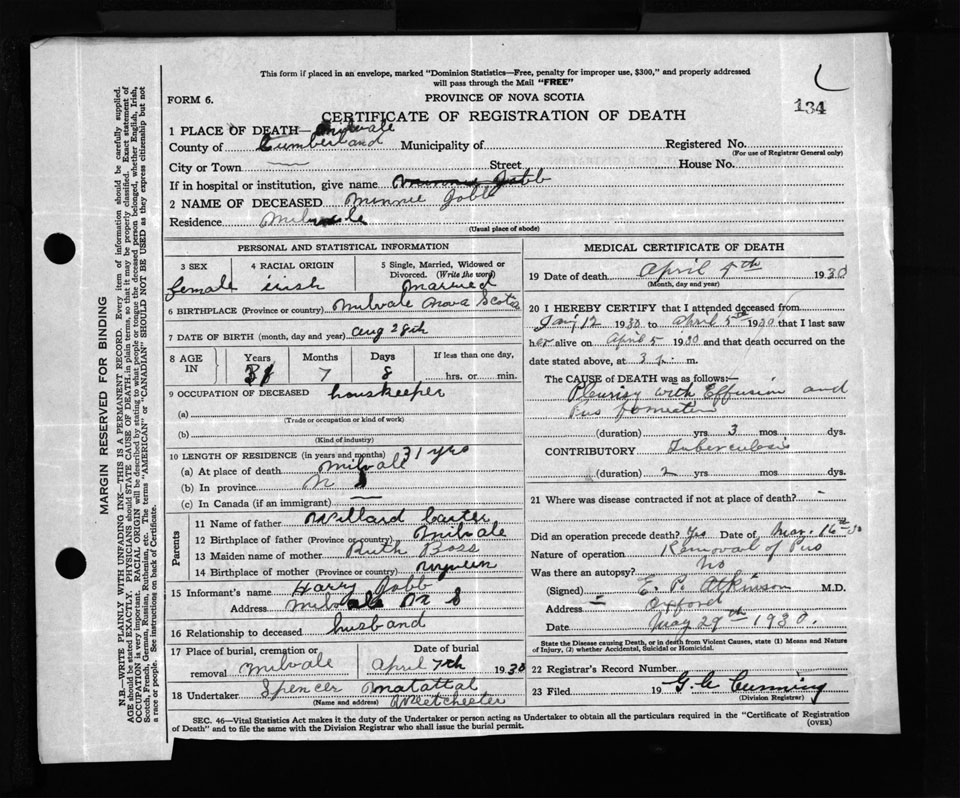 This form if placed in an envelope, marked "Dominion Statistics—Free, penalty for improper use, $300," and properly addressed
will pass through the Mail "FREE"
134
FORM 6.
PROVINCE OF NOVA SCOTIA
CERTIFICATE OF REGISTRATION OF DEATH
1 PLACE OF DEATH— Milvale
County of Cumberland Municipality of Registered No.
(For use of Registrar General only)
City or Town Street House No.
If in hospital or institution, give name
2 NAME OF DECEASED Minnie Jobb
Residence Milvale
(Usual place of abode)
PERSONAL AND STATISTICAL INFORMATION
3 SEX 4 RACIAL ORIGIN 5 Single, Married, Widowed or
Divorced. (Write the word)
female irish married
6 BIRTHPLACE (Province or country) Milvale Nova Scotia
7 DATE OF BIRTH (month, day and year) Aug 28th
8 AGE IN Years Months Days If less than one day,
7 8 hrs. or min.
9 OCCUPATION OF DECEASED houskeeper
(a)
(Trade or occupation or kind of work)
(b)
(Kind of industry)
10 LENGTH OF RESIDENCE (in years and months) 31 yrs
(a) At place of death Milvale
(b) In province N S
(c) In Canada (if an immigrant)
Parents
11 Name of father Willard Carter
12 Birthplace of father (Province or country) Milvale
13 Maiden name of mother Ruth Boss
14 Birthplace of mother (Province or country)
15 Informant's name Harry Jobb
Address Milvale N S
16 Relationship to deceased husband
17 Place of burial, cremation or Date of burial
removal Milvale April 7th 1930
18 Undertaker Spencer Matattal
(Name and address)
MEDICAL CERTIFICATE OF DEATH
19 Date of death April 5th 1930
(Month, day and year)
20 I HEREBY CERTIFY that I attended deceased from
Jan 12 1930 to April 5th 1930 that I last saw
her alive on April 5 1930 and that death occurred on the
date stated above, at 3 m.
The CAUSE of DEATH was as follows:—
Pleurisy with Effusion and
Pus
(duration) yrs 3 mos dys.
CONTRIBUTORY Tuberculosis
(duration) 2 yrs mos dys.
21 Where was disease contracted if not at place of death?
Did an operation precede death? Yes Date of Mar. 16th 30
Nature of operation Removal of Pus
Was there an autopsy? No
(Signed) E. P. Atkinson M.D.
Address Oxford
Date May 29th 1930.
State the Disease causing Death, or in death from Violent Causes, state (1) Means and Nature
of Injury, (2) whether Accidental, Suicidal or Homicidal.
22 Registrar's Record Number
23 Filed 19
(Division Registrar)
SEC. 46—Vital Statistics Act makes it the duty of the Undertaker or person acting as Undertaker to obtain all the particulars required in the "Certificate of Registration
of Death" and to file the same with the Division Registrar who shall issue the burial permit.
(OVER)
MARGIN RESERVED FOR BINDING
N.B.—WRITE PLAINLY WITH UNFADING INK—THIS IS A PERMANENT RECORD. Every item of information should be carefully supplied.
AGE should be stated EXACTLY. PHYSICIANS should STATE CAUSE OF DEATH in plain terms, so that it may be properly classified. Exact statement of
OCCUPATION is very important. RACIAL ORIGIN will be described by stating to what people or tongue the deceased person belonged, whether English, Irish,
Scotch, French, German, Russian, Ruthenian, etc. The terms "AMERICAN" or "CANADIAN" SHOULD NOT BE USED as they express citizenship but not
a race or people. See instructions on back of Certificate.